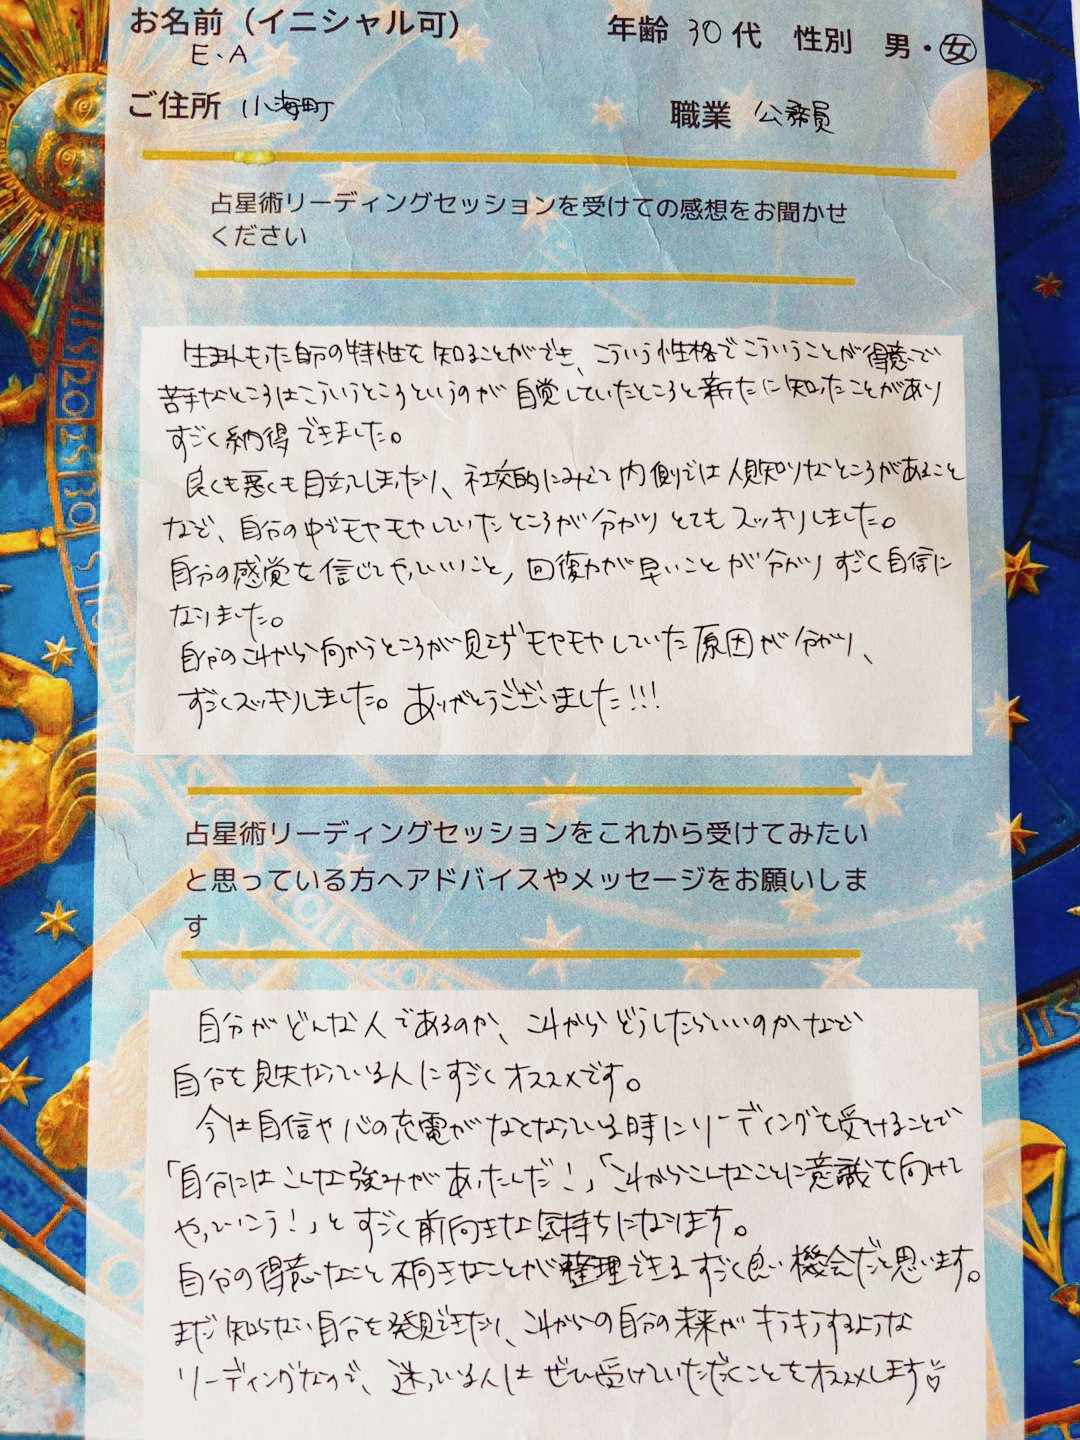 お名前（イニシャル可） 年齢 30代 性別 男・女
E.A
ご住所 小海町 職業 公務員
占星術リーディングセッションを受けての感想をお聞かせ
ください
生まれもった自分の特性を知ることができ、こういう性格でこういうことが得意で
苦手なところはこういうところというのが自覚していたところと新たに知ったことがあり
すごく納得できました。
良くも悪くも目立ってしまったり、社交的にみえて内側では人見知りなところがあること
など、自分の中でモヤモヤしていたところが分かりとてもスッキリしました。
自分の感覚を信じてやっていいこと、回復力が早いことが分かりすごく自信に
なりました。
自分のこれから向かうところが見えずモヤモヤしていた原因が分かり、
すごくスッキリしました。ありがとうございました!!!
占星術リーディングセッションをこれから受けてみたい
と思っている方へアドバイスやメッセージをお願いしま
す
自分がどんな人であるのか、これからどうしたらいいのかなど
自分を見失なっている人にすごくオススメです。
今は自信や心の充電がなくなっている時にリーディングを受けることで
「自分にはこんな強みがあったんだ!」「これからこんなことに意識を向けて
やっていこう!」とすごく前向きな気持ちになります。
自分の得意なこと不向きなことが整理できるすごく良い機会だと思います。
まだ知らない自分を発見できたり、これからの自分の未来がキラキラするような
リーディングなので、迷っている人はぜひ受けていただくことをオススメします♡
20
25
30